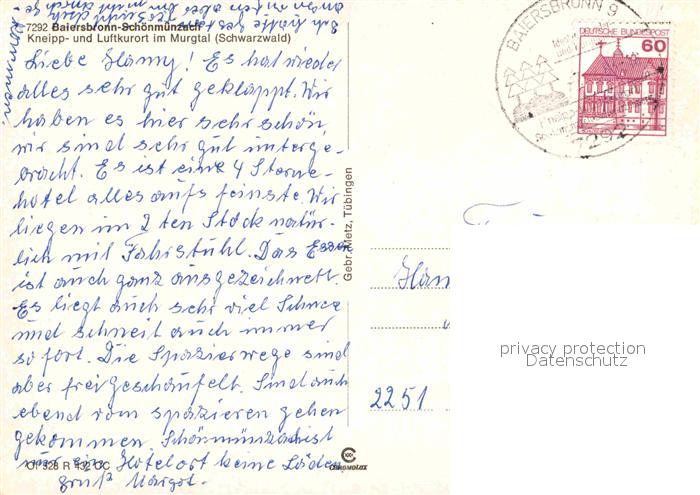 7292 Baiersbronn-Schönmünzach
Kneipp- und Luftkurort im Murgtal (Schwarzwald)
kommen.
Liebe Hamy! Es hat wieder
alles sehr gut geklappt. Wir
haben es hier sehr schön,
wir sind sehr gut unterge-
bracht. Es ist ein 4 Sterne-
hotel alles aufs feinste. Wir
liegen im 2 ten Stock natür-
lich mit Fahrstuhl. Das Essen
ist auch ganz ausgezeichnett.
Es liegt auch sehr viel Schnee
und schneit auch immer
so fort. Die Spazierwege sind
aber freigeschaufelt. Sind auch
ebend vom spazieren gehen
gekommen. Schönmünzach ist
nur ein Hotelort keine Läden
Gruß Margot.
Gebr. Metz, Tübingen
CHROMOLUX
BAIERSBRONN 9
7292
DEUTSCHE BUNDESPOST
60
Ham
2251
privacy protection
Datenschutz